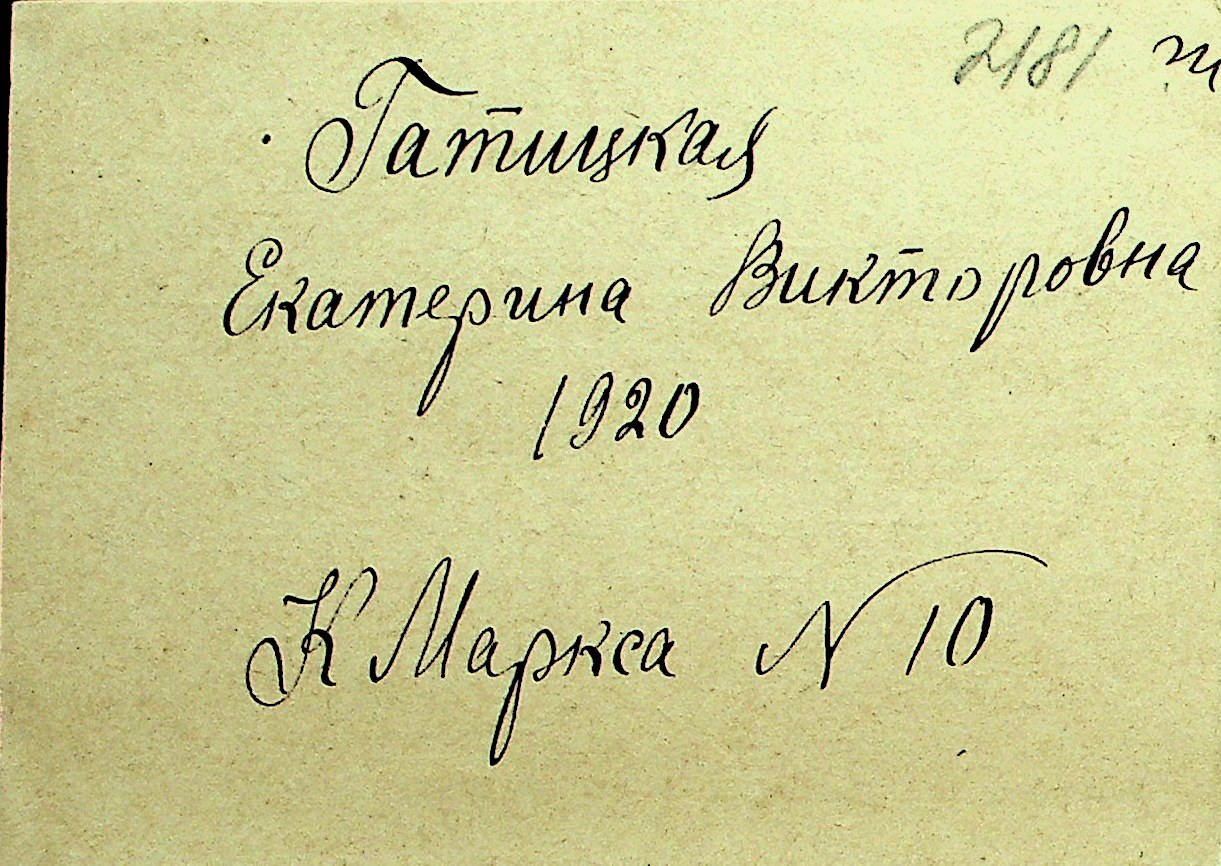 2181
Гатицкая
Екатерина Викторовна
1920
К Маркса N 10